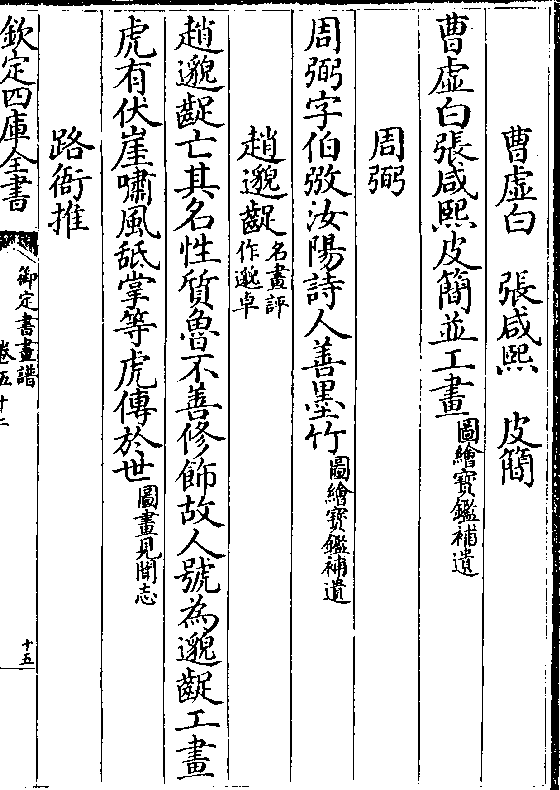 曹虛白　張咸熙　皮簡
曹虛白張咸熙皮簡並工畫圖繪寳鑑補遺
周弼
周弼字伯弜汝陽詩人善墨竹圖繪寳鑑補遺
趙邈齪名畫評作邈卓
趙邈齪亡其名性質魯不善修飾故人號為邈齪工畫
虎有伏崖嘯風舐掌等虎傳於世圖畫見聞志
路衙推
欽定四庫全書
御定書畫譜
卷五十二
十五